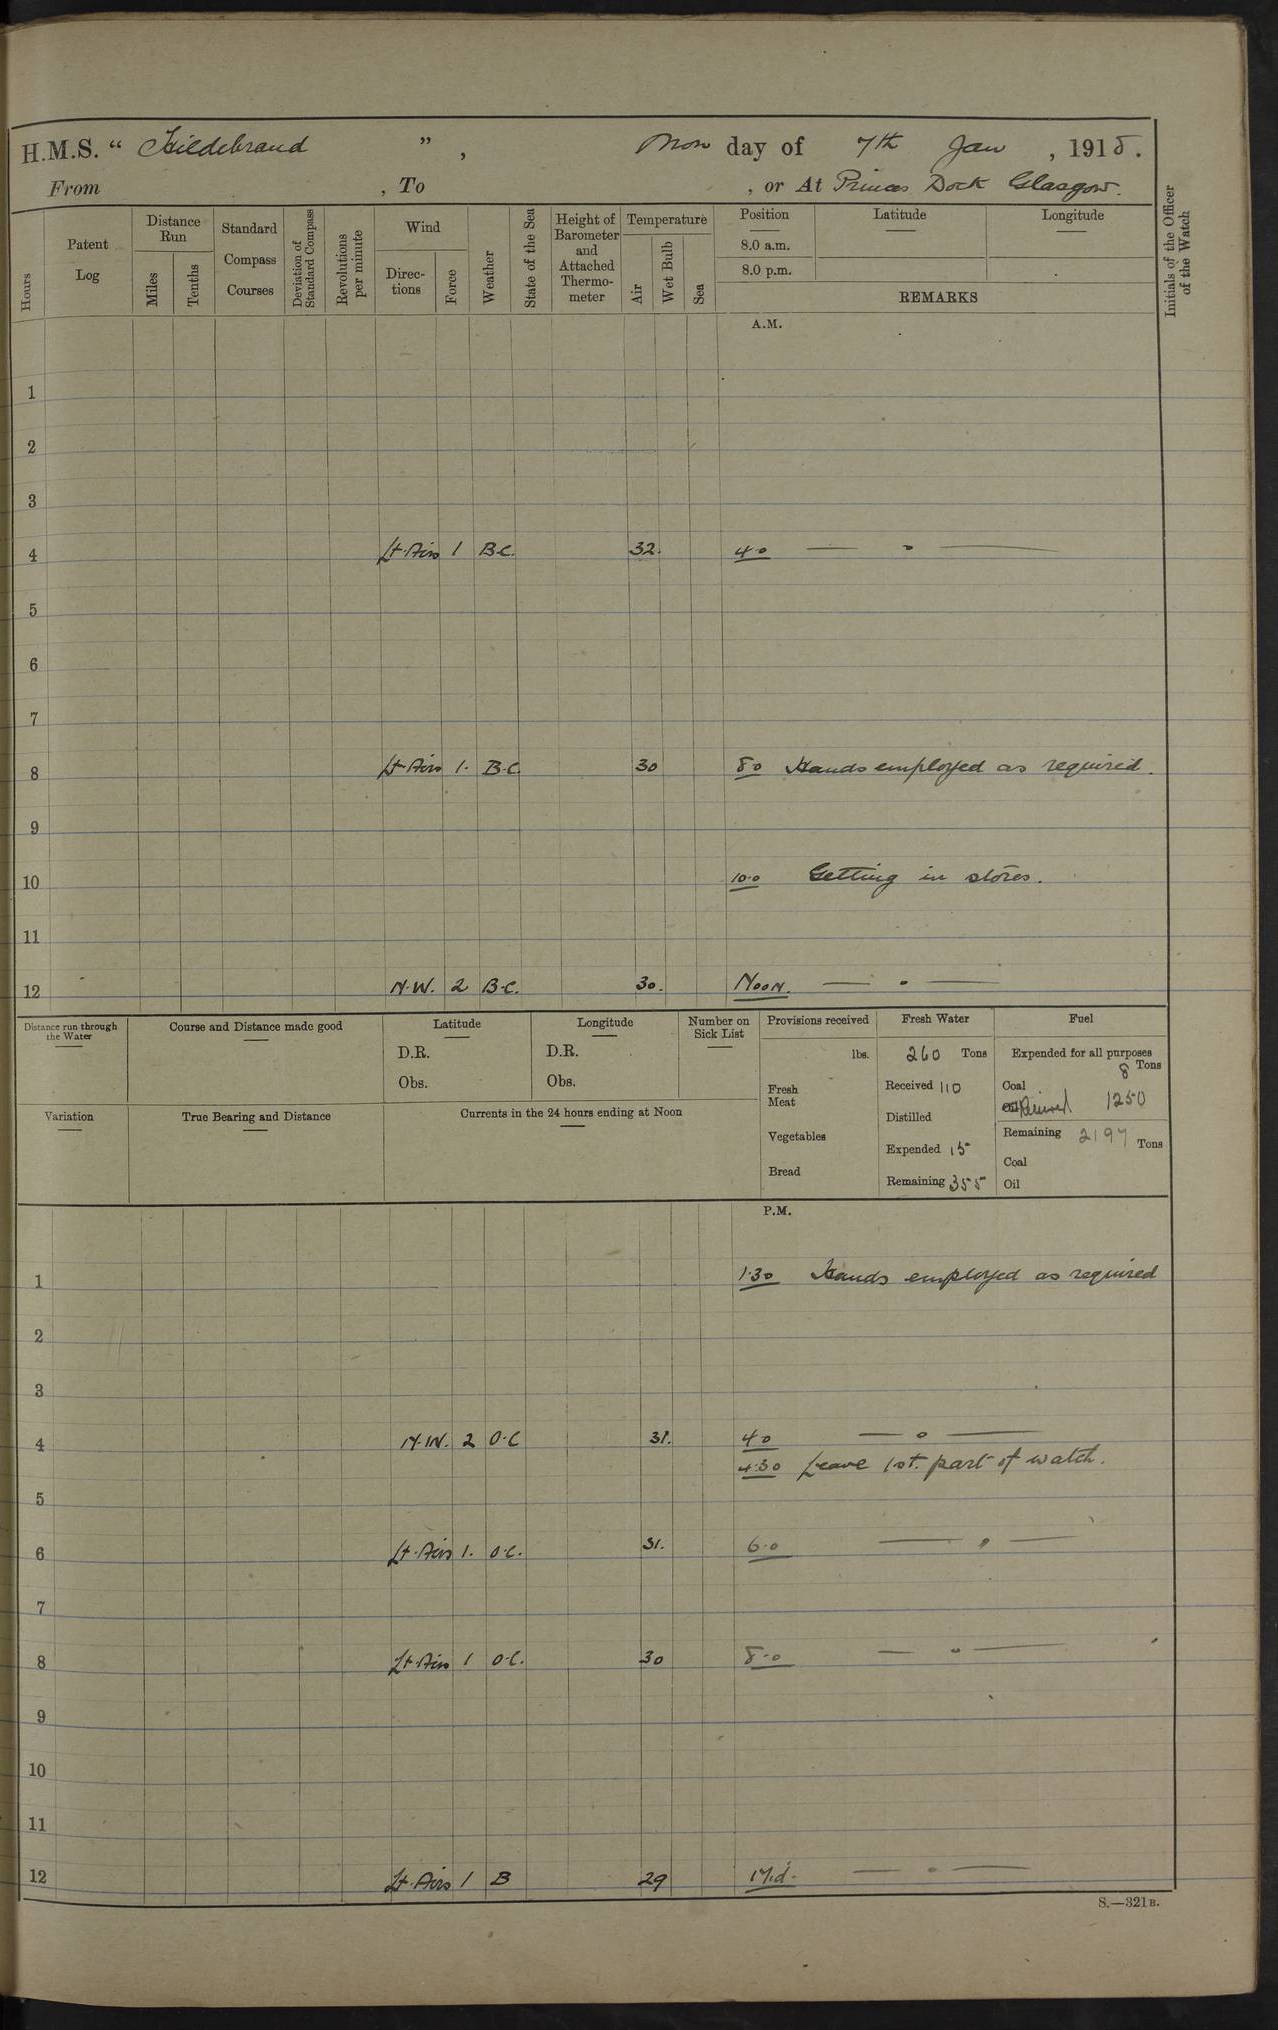 H.M.S. “ Hildebrand ” , Mon day of 7th Jan , 1918.
From , To , or At Princes Dock Glasgow.
Hours
Patent Log
Distance Run
Miles
Tenths
Standard Compass Courses
Deviation of Standard Compass
Revolutions per minute
Wind
Direc-tions
Force
Weather
State of the Sea
Height of Barometer and Attached Thermo-meter
Temperature
Air
Wet Bulb
Sea
Position
8.0 a.m.
8.0 p.m.
Latitude
Longitude
REMARKS
Initials of the Officer of the Watch
A.M.
1
2
3
4 Lt. Airs 1 B.C. 32. 4.0 — " —
5
6
7
8 Lt Airs 1. B.C. 30 8.0 Hands employed as required.
9
10 10.0 Getting in stores.
11
12 N.W. 2 B.C. 30. Noon. — " —
Distance run through the Water
Course and Distance made good
Latitude
D.R.
Obs.
Longitude
D.R.
Obs.
Number on Sick List
Provisions received
lbs.
Fresh Meat
Vegetables
Bread
Fresh Water
260 Tons
Received 110
Distilled
Expended 15
Remaining 355
Fuel
Expended for all purposes
8 Tons
Coal
Oil Received 1250
Remaining 2197 Tons
Coal
Oil
Variation
True Bearing and Distance
Currents in the 24 hours ending at Noon
P.M.
1 1.30 Hands employed as required
2
3
4 N.W. 2 O.C 31. 4.0 — " —
4.30 Leave 1st. part of watch.
5
6 Lt. Airs 1. O.C. 31. 6.0 — " —
7
8 Lt. Airs 1 O.C. 30 8.0 — " —
9
10
11
12 Lt. Airs 1 B 29 Mid. — " —
S.—321B.